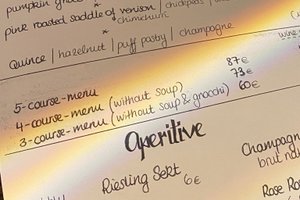 pumpkin gnocc
pink roasted saddle of venison | chickpeas |
* chimichurri
Quince | hazelnut | puff pastry | champagne
wine
5-course-menu 87€
4-course-menu (without soup) 73€
3-course-menu (without soup & gnocchi) 60€
aperitive
Riesling Sekt 6€
Champag
brut n
Rose Ro